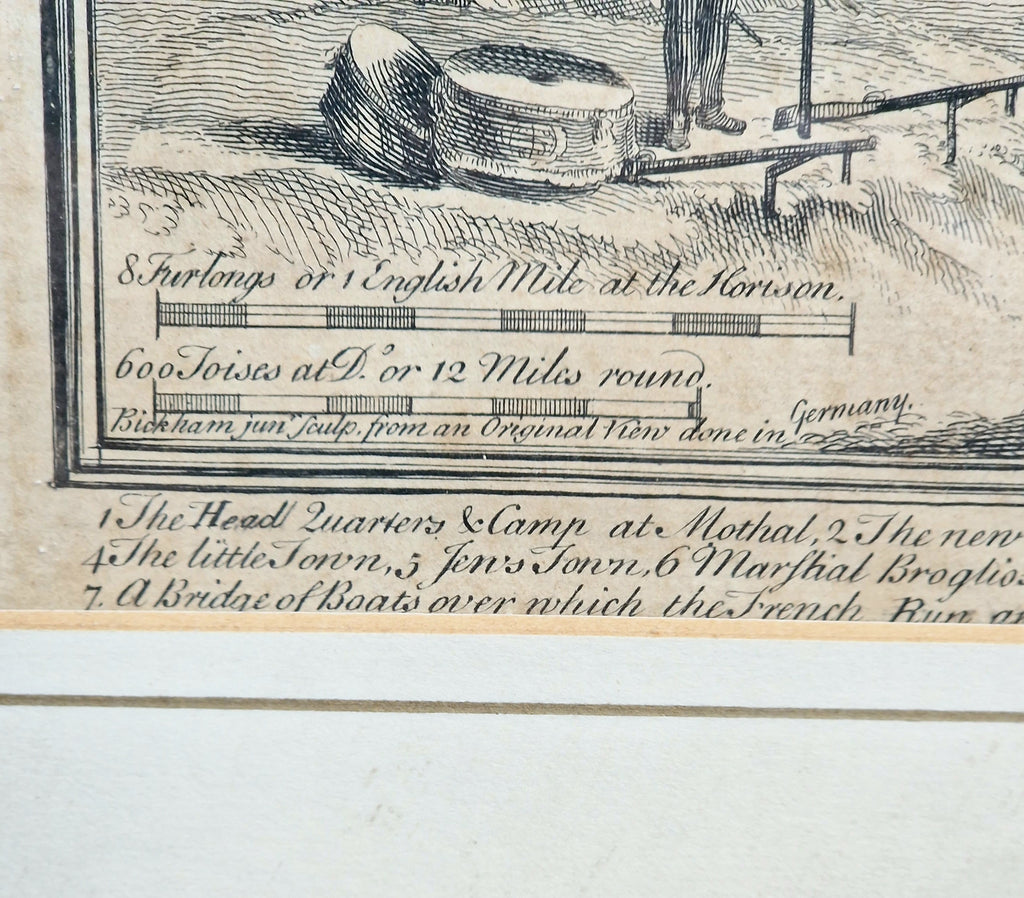 8 Furlongs or 1 English Mile at the Horison.
600 Toises at D.º or 12 Miles round.
Bickham junʳ Sculp. from an Original View done in Germany.
1 The Head Quarters & Camp at Mothal, 2 The new
4 The little Town, 5 Jew's Town, 6 Marſhal Broglio's
7. A Bridge of Boats over which the French Run an